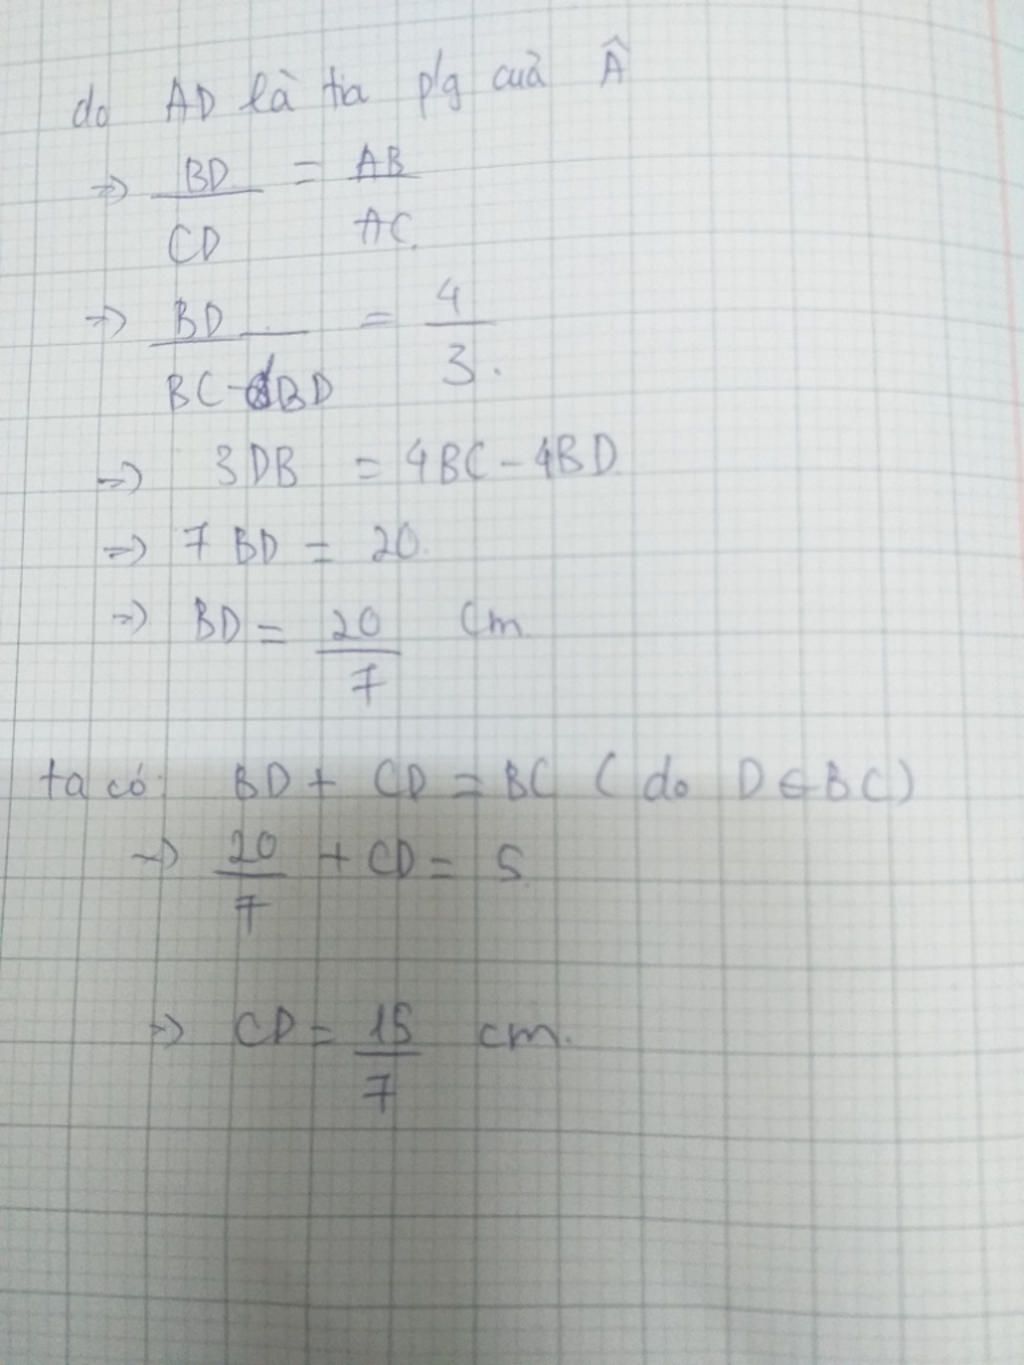 do AD là tia p/g cuả Â
=> BD/CD = AB/AC.
=> BD/BC-BD = 4/3.
=> 3DB = 4BC - 4BD
=> 7 BD = 20.
=> BD = 20/7 cm
ta có: BD + CD = BC (do D ∈ BC)
=> 20/7 + CD = 5
=> CD = 15/7 cm.